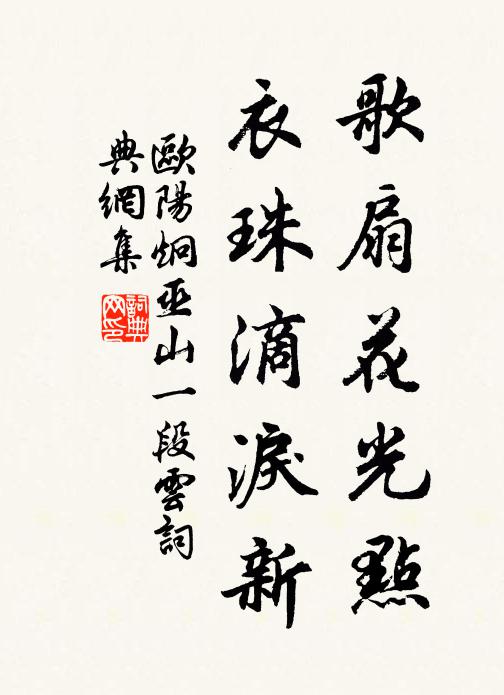 歌扇花光點
衣珠滴淚新
歐陽炯巫山一段雲詞
典網集
詞典网印